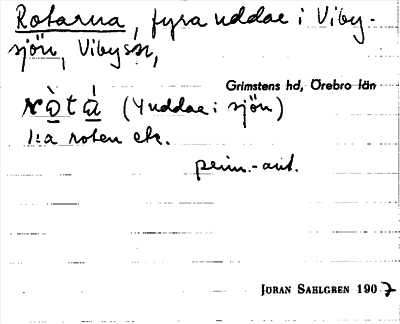 Rotarna, fyra uddar i Viby-
sjön, Vibysn,
Grimstens hd, Örebro län
ròtá (4 uddar i sjön)
1:a roten etc.
pers.-ant.
JÖRAN SAHLGREN 1907